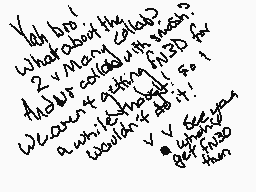 Yah bro!
What about the
2 v Many collab?
And ur collab with smash?
we arent getting FN3D for
a while though! So I
wouldn't do it!
v v See you
when i
get FN3D
then